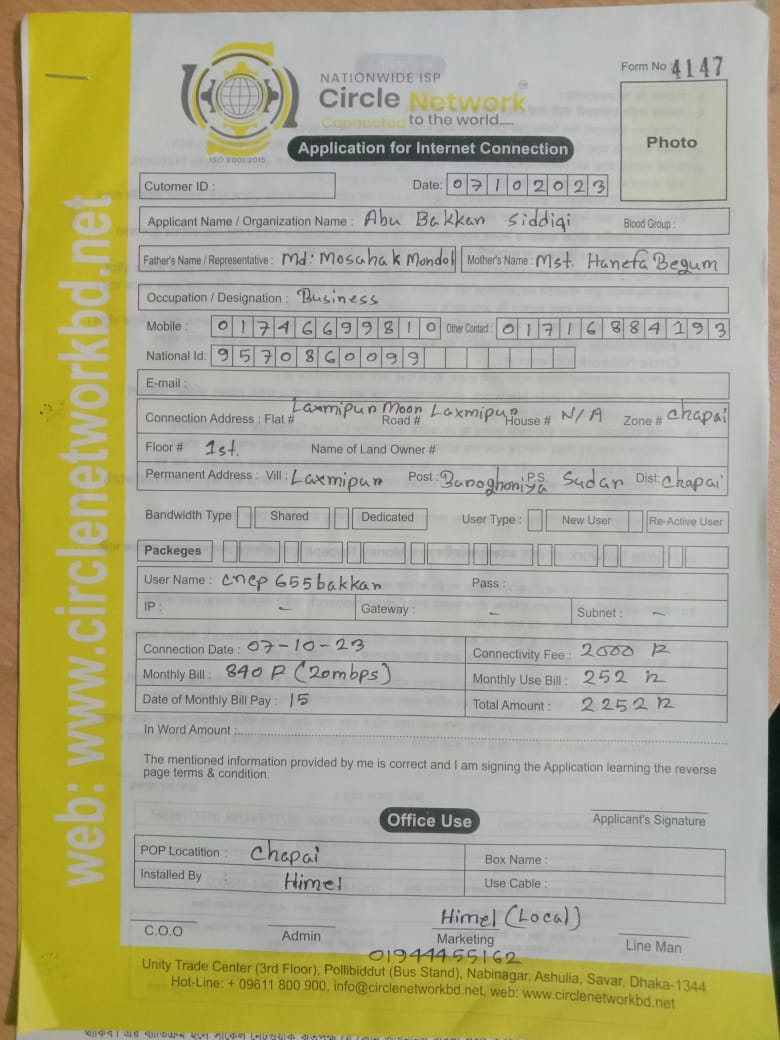 NATIONWIDE ISP
Circle Network
Connected to the world.....
ISO 9001:2015
Form No : 4147
Photo
Application for Internet Connection
Cutomer ID :
Date: 07102023
Applicant Name / Organization Name : Abu Bakkan Siddiqi Blood Group :
Father's Name / Representative : Md: Mosahak Mondol Mother's Name : Mst. Hanefa Begum
Occupation / Designation : Business
Mobile : 01746699810 Other Contact : 01716884193
National Id: 9570860099
E-mail :
Connection Address : Flat # Laxmipun Moon Road # Laxmipun House # N/A Zone # Chapai
Floor # 1st. Name of Land Owner #
Permanent Address : Vill : Laxmipun Post : Banoghoniya P.S. Sudan Dist: Chapai
Bandwidth Type Shared Dedicated User Type : New User Re-Active User
Packeges
User Name : cnep655bakkan Pass :
IP : – Gateway : – Subnet : –
Connection Date : 07-10-23 Connectivity Fee : 2000 
Monthly Bill : 840 P (20mbps) Monthly Use Bill : 252
Date of Monthly Bill Pay : 15 Total Amount : 2252
In Word Amount :
The mentioned information provided by me is correct and I am signing the Application learning the reverse
page terms & condition.
Applicant's Signature
Office Use
POP Locatition : Chapai Box Name :
Installed By : Himel Use Cable :
Himel (Local)
C.O.O Admin Marketing Line Man
01944455162
Unity Trade Center (3rd Floor), Pollibiddut (Bus Stand), Nabinagar, Ashulia, Savar, Dhaka-1344
Hot-Line: + 09611 800 900, info@circlenetworkbd.net, web: www.circlenetworkbd.net
web: www.circlenetworkbd.net